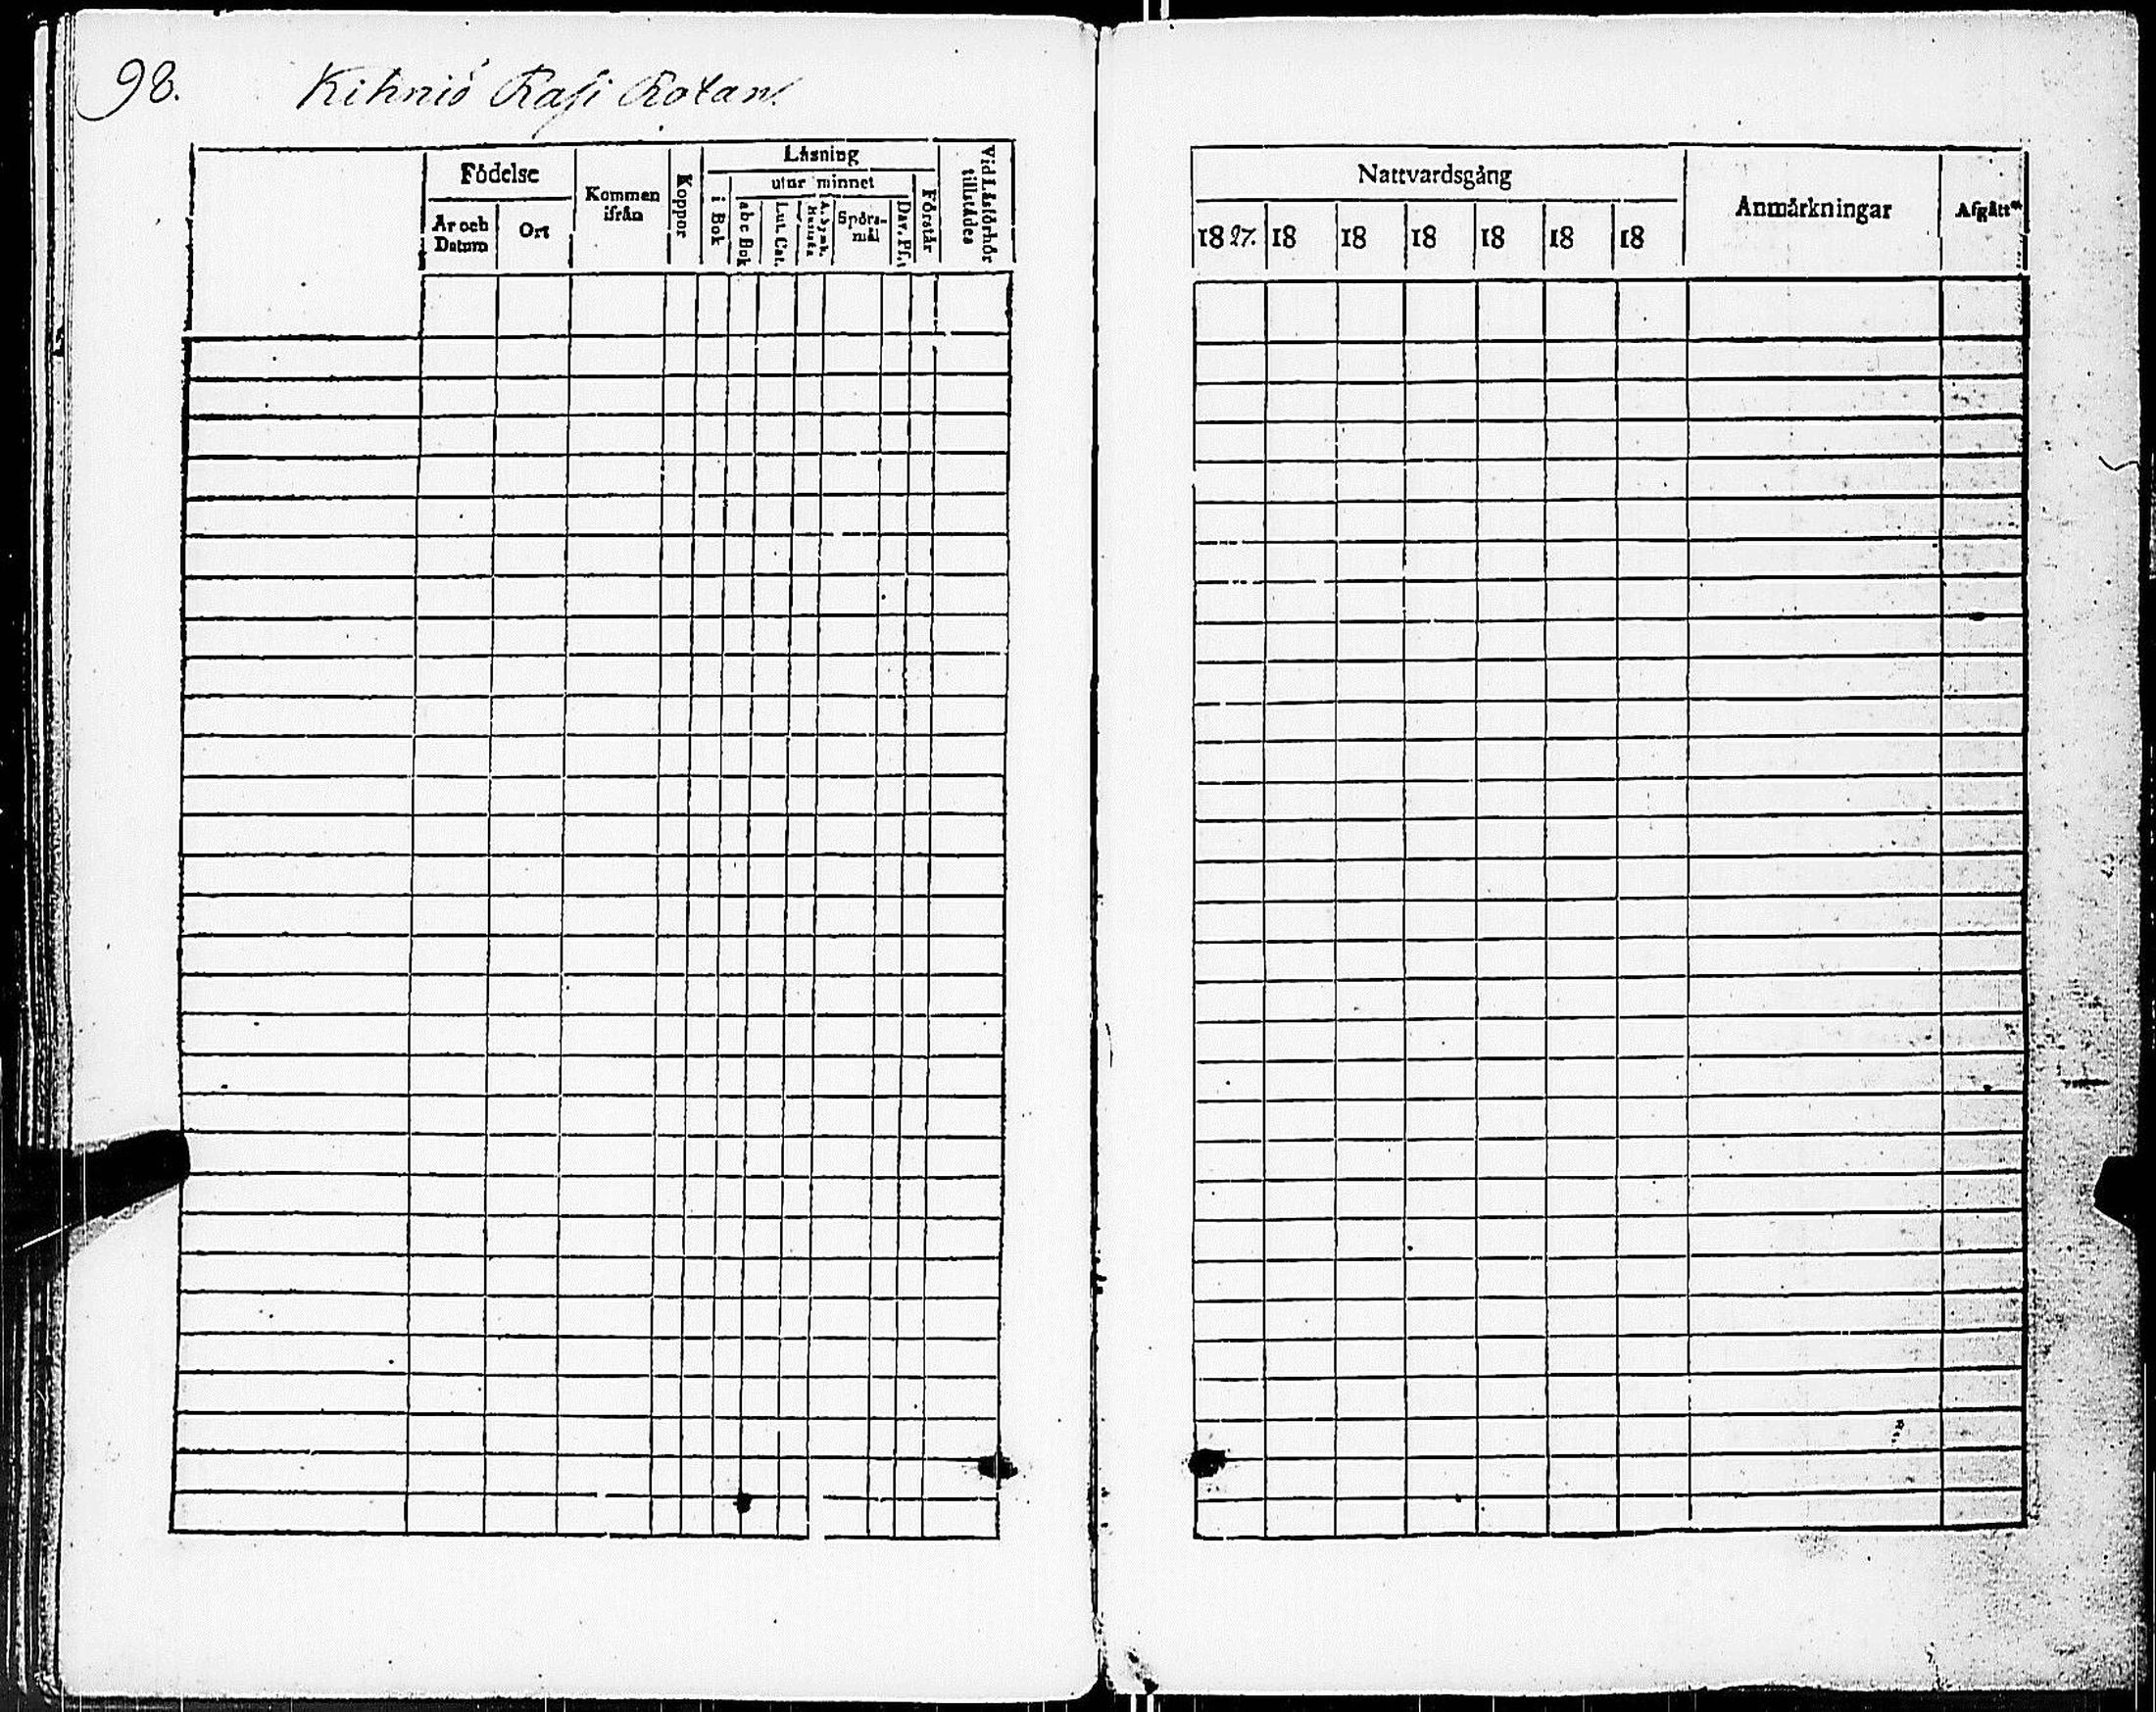 98. Kihniö Rasi Rotan.
Födelse
År och Datum
Ort
Kommen ifrån
Koppor
Läsning
i Bok
utur minnet
abc Bok
Lut. Cat.
A. Symb.
Spörs-mål
Dav. Ps.
Förstår
Vid Läsförhör tillstädes
Nattvardsgång
1827. 18 18 18 18 18 18
Anmärkningar
Afgått